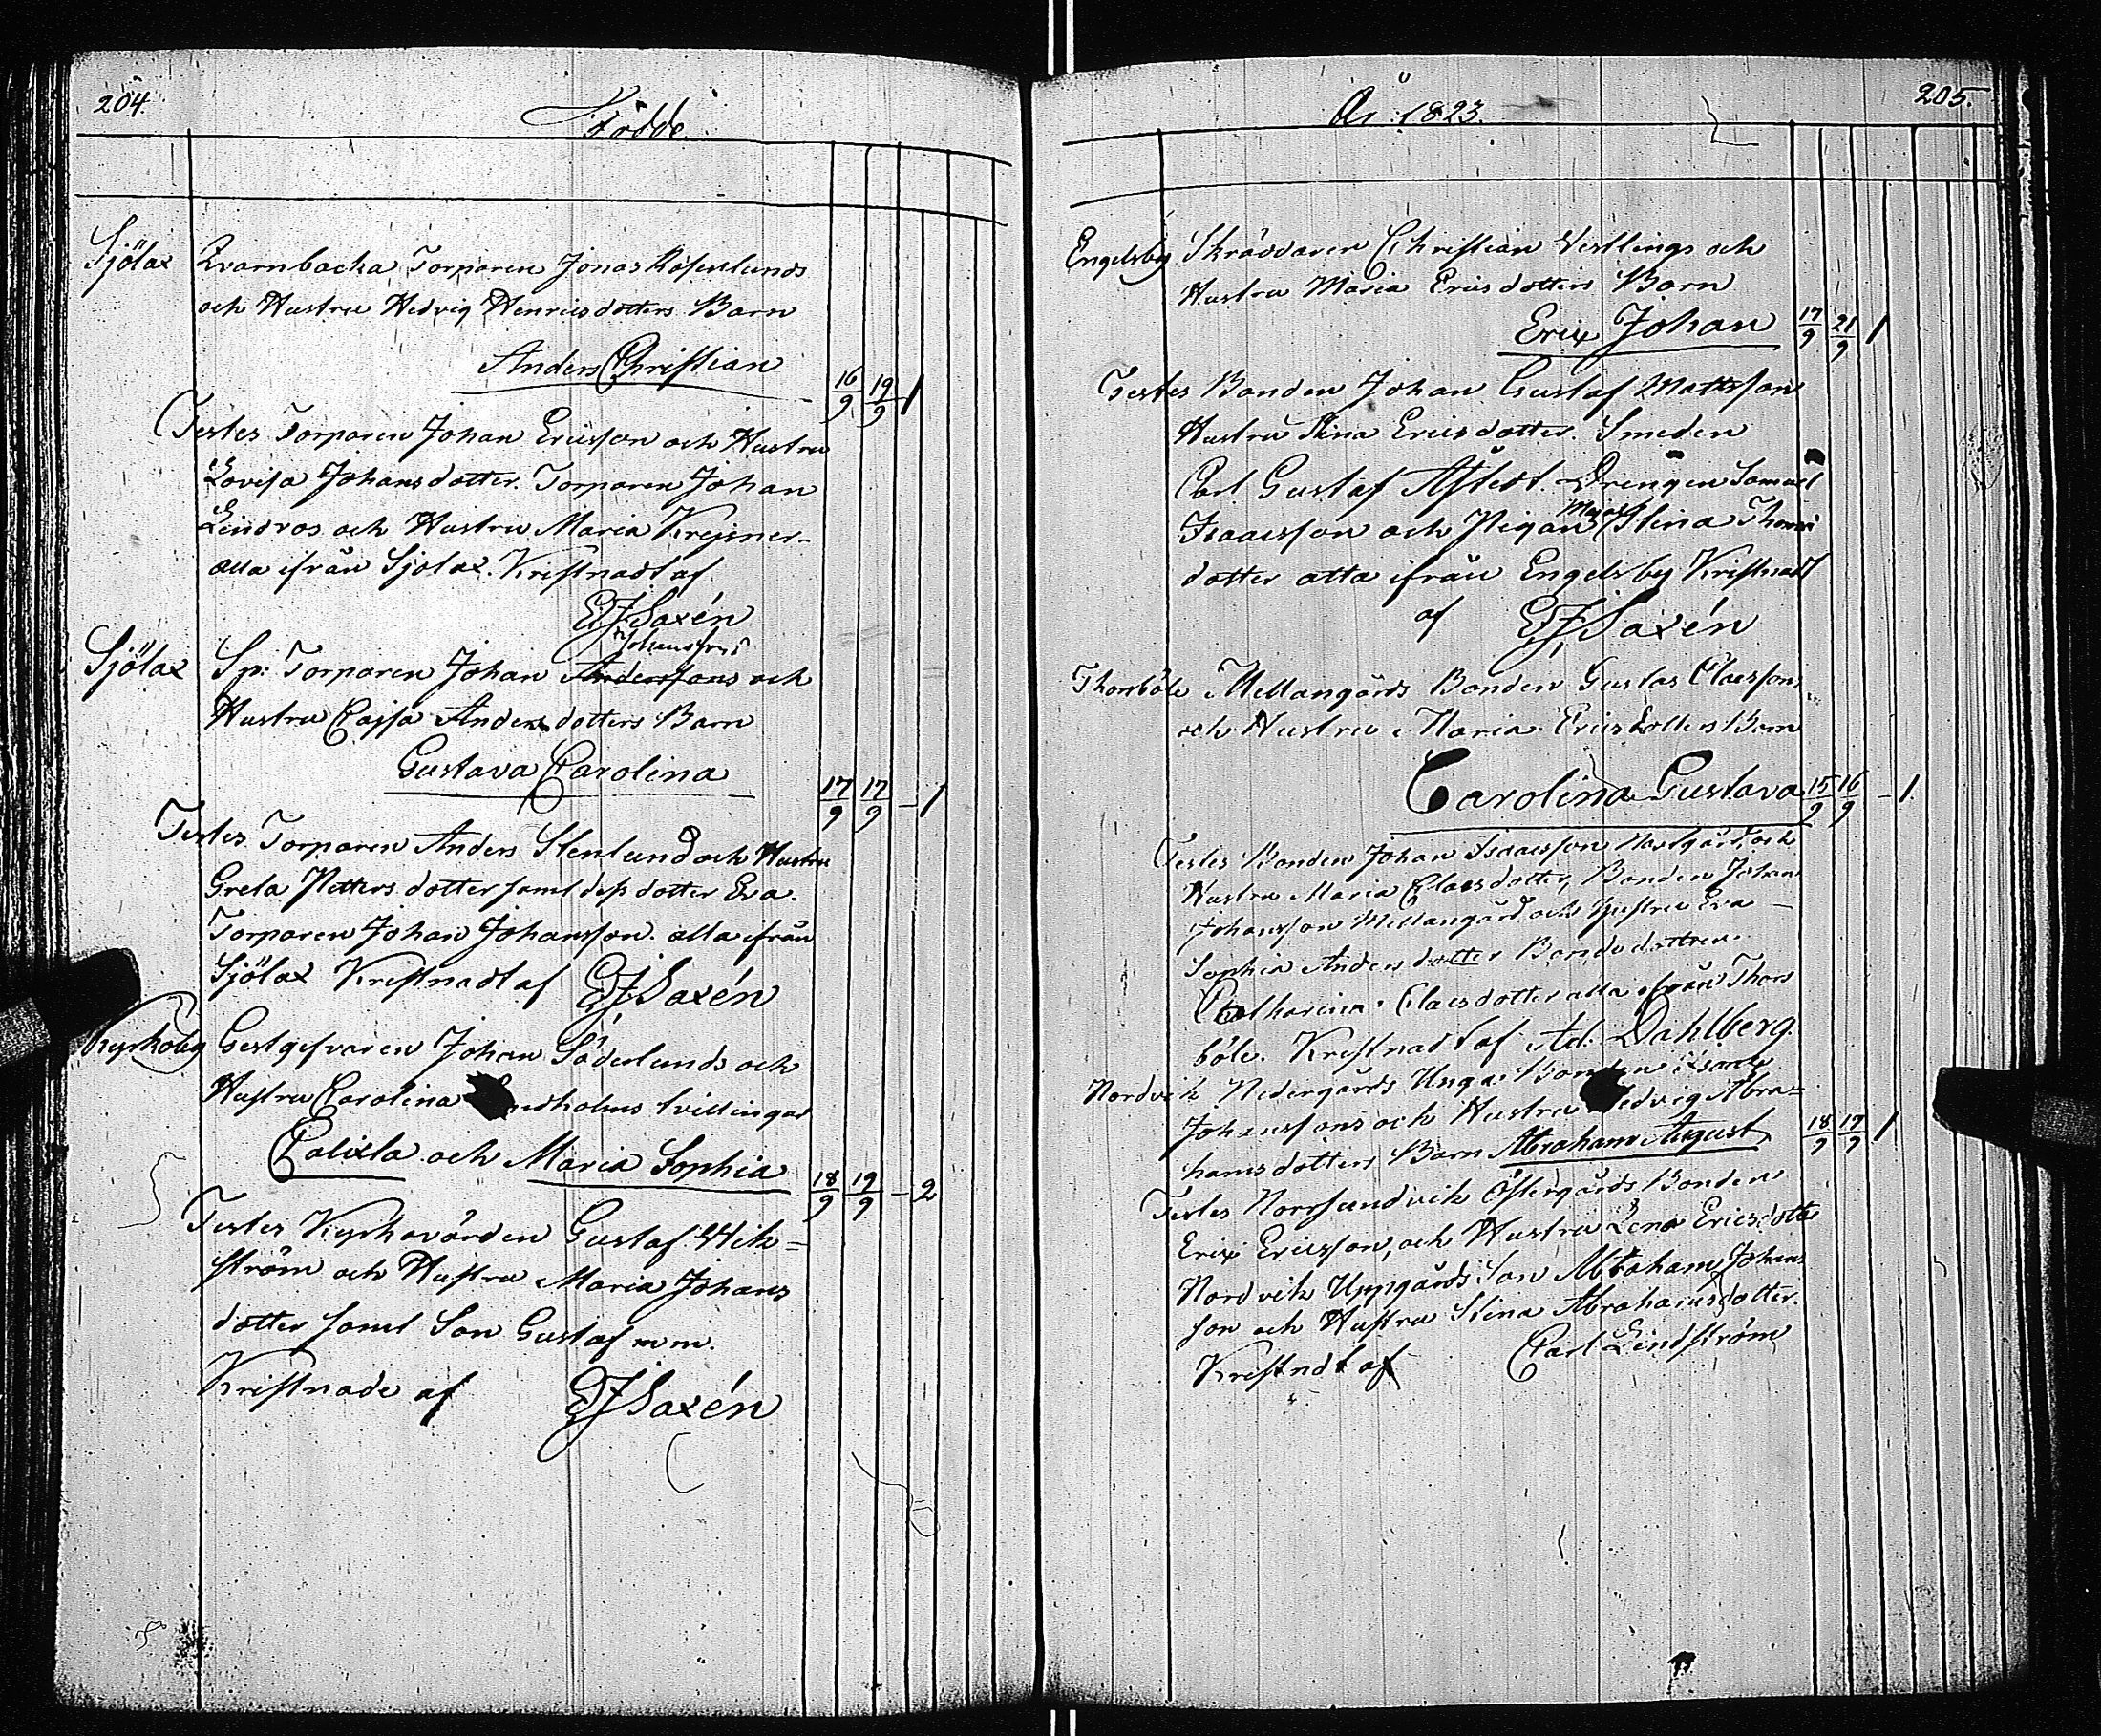 204.
Födde
Sjölax Qvarnbacka Torparen Jonas Rosenlunds
och Hustru Hedvig Henricsdotters Barn
Anders Christian 16/9 19/9 1
Testes Torparen Johan Ericsson och Hustru
Lovisa Johansdotter. Torparen Johan
Lindros och Hustru Maria
alla ifrån Sjölax. Kristnadt af
EJSaxén
Johanssons
Sjölax Sp: Torparen Johan Anderssons och
Hustru Cajsa Andersdotters Barn
Gustava Carolina 17/9 17/9 - 1
Testes Torparen Anders Stenlund och Hustru
Greta Pettersdotter samt dess dotter Eva.
Torparen Johan Johansson. alla ifrån
Sjölax Kristnadt af EJSaxén
Kyrkoby Gestgifvaren Johan Söderlunds och
Hustru Carolina ndholms tvillingar
Calixta och Maria Sophia 18/9 19/9 - 2
Testes Kyrkovärden Gustaf Wik=
ström och Hustru Maria Johans
dotter samt Son Gustaf mm.
Kristnade af EJSaxén
År 1823.
205.
Engelsby Skräddaren Christian Vestlings och
Hustru Maria Ericsdotters Barn
Eric Johan 17/9 21/9 1
Testes Bonden Johan Gustaf Mattsson
Hustru Stina Ericsdotter. Smeden
Carl Gustaf Drengen Samuel
Isaacsson och Pigan Maja Stina Thomas
dotter alla ifrån Engelsby Kristnadt
af EJSaxén
Thorsböle Mellangårds Bonden Gustaf Claessons
och Hustru Maria Ericsdotters Barn
Carolina Gustava 15/9 16/9 - 1.
Testes Bonden Johan Isaacsson och
Hustru Maria Claesdotter, Bonden Johan
Johansson Mellangård och Hustru Eva
Sophia Andersdotter Bondedottren
Catharina Claesdotter alla ifrån Thors
böle. Kristnadt af Ad. Dahlberg.
Nordvik Nedergårds Unga Bonden Isaac
Johanssons och Hustru Hedvig Abra=
hamsdotters Barn Abraham August 18/9 19/9 1
Testes Norrsundvik Östergårds Bonden
Eric Ericsson, och Hustru Lena Ericsdotter
Nordvik Uppgårds Son Abraham Johans
son och Hustru Stina Abrahamsdotter.
Kristndt af Carl Lindström